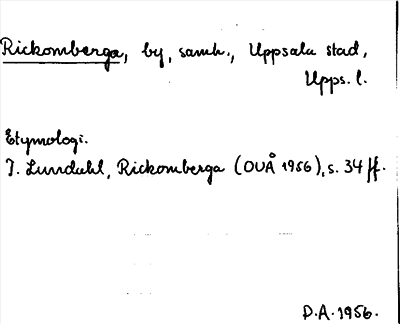 Rickomberga, by, samh., Uppsala stad,
Upps. l.
Etymologi.
I. Lundahl, Rickomberga (OUÅ 1956), s. 34 ff.
P.A. 1956.